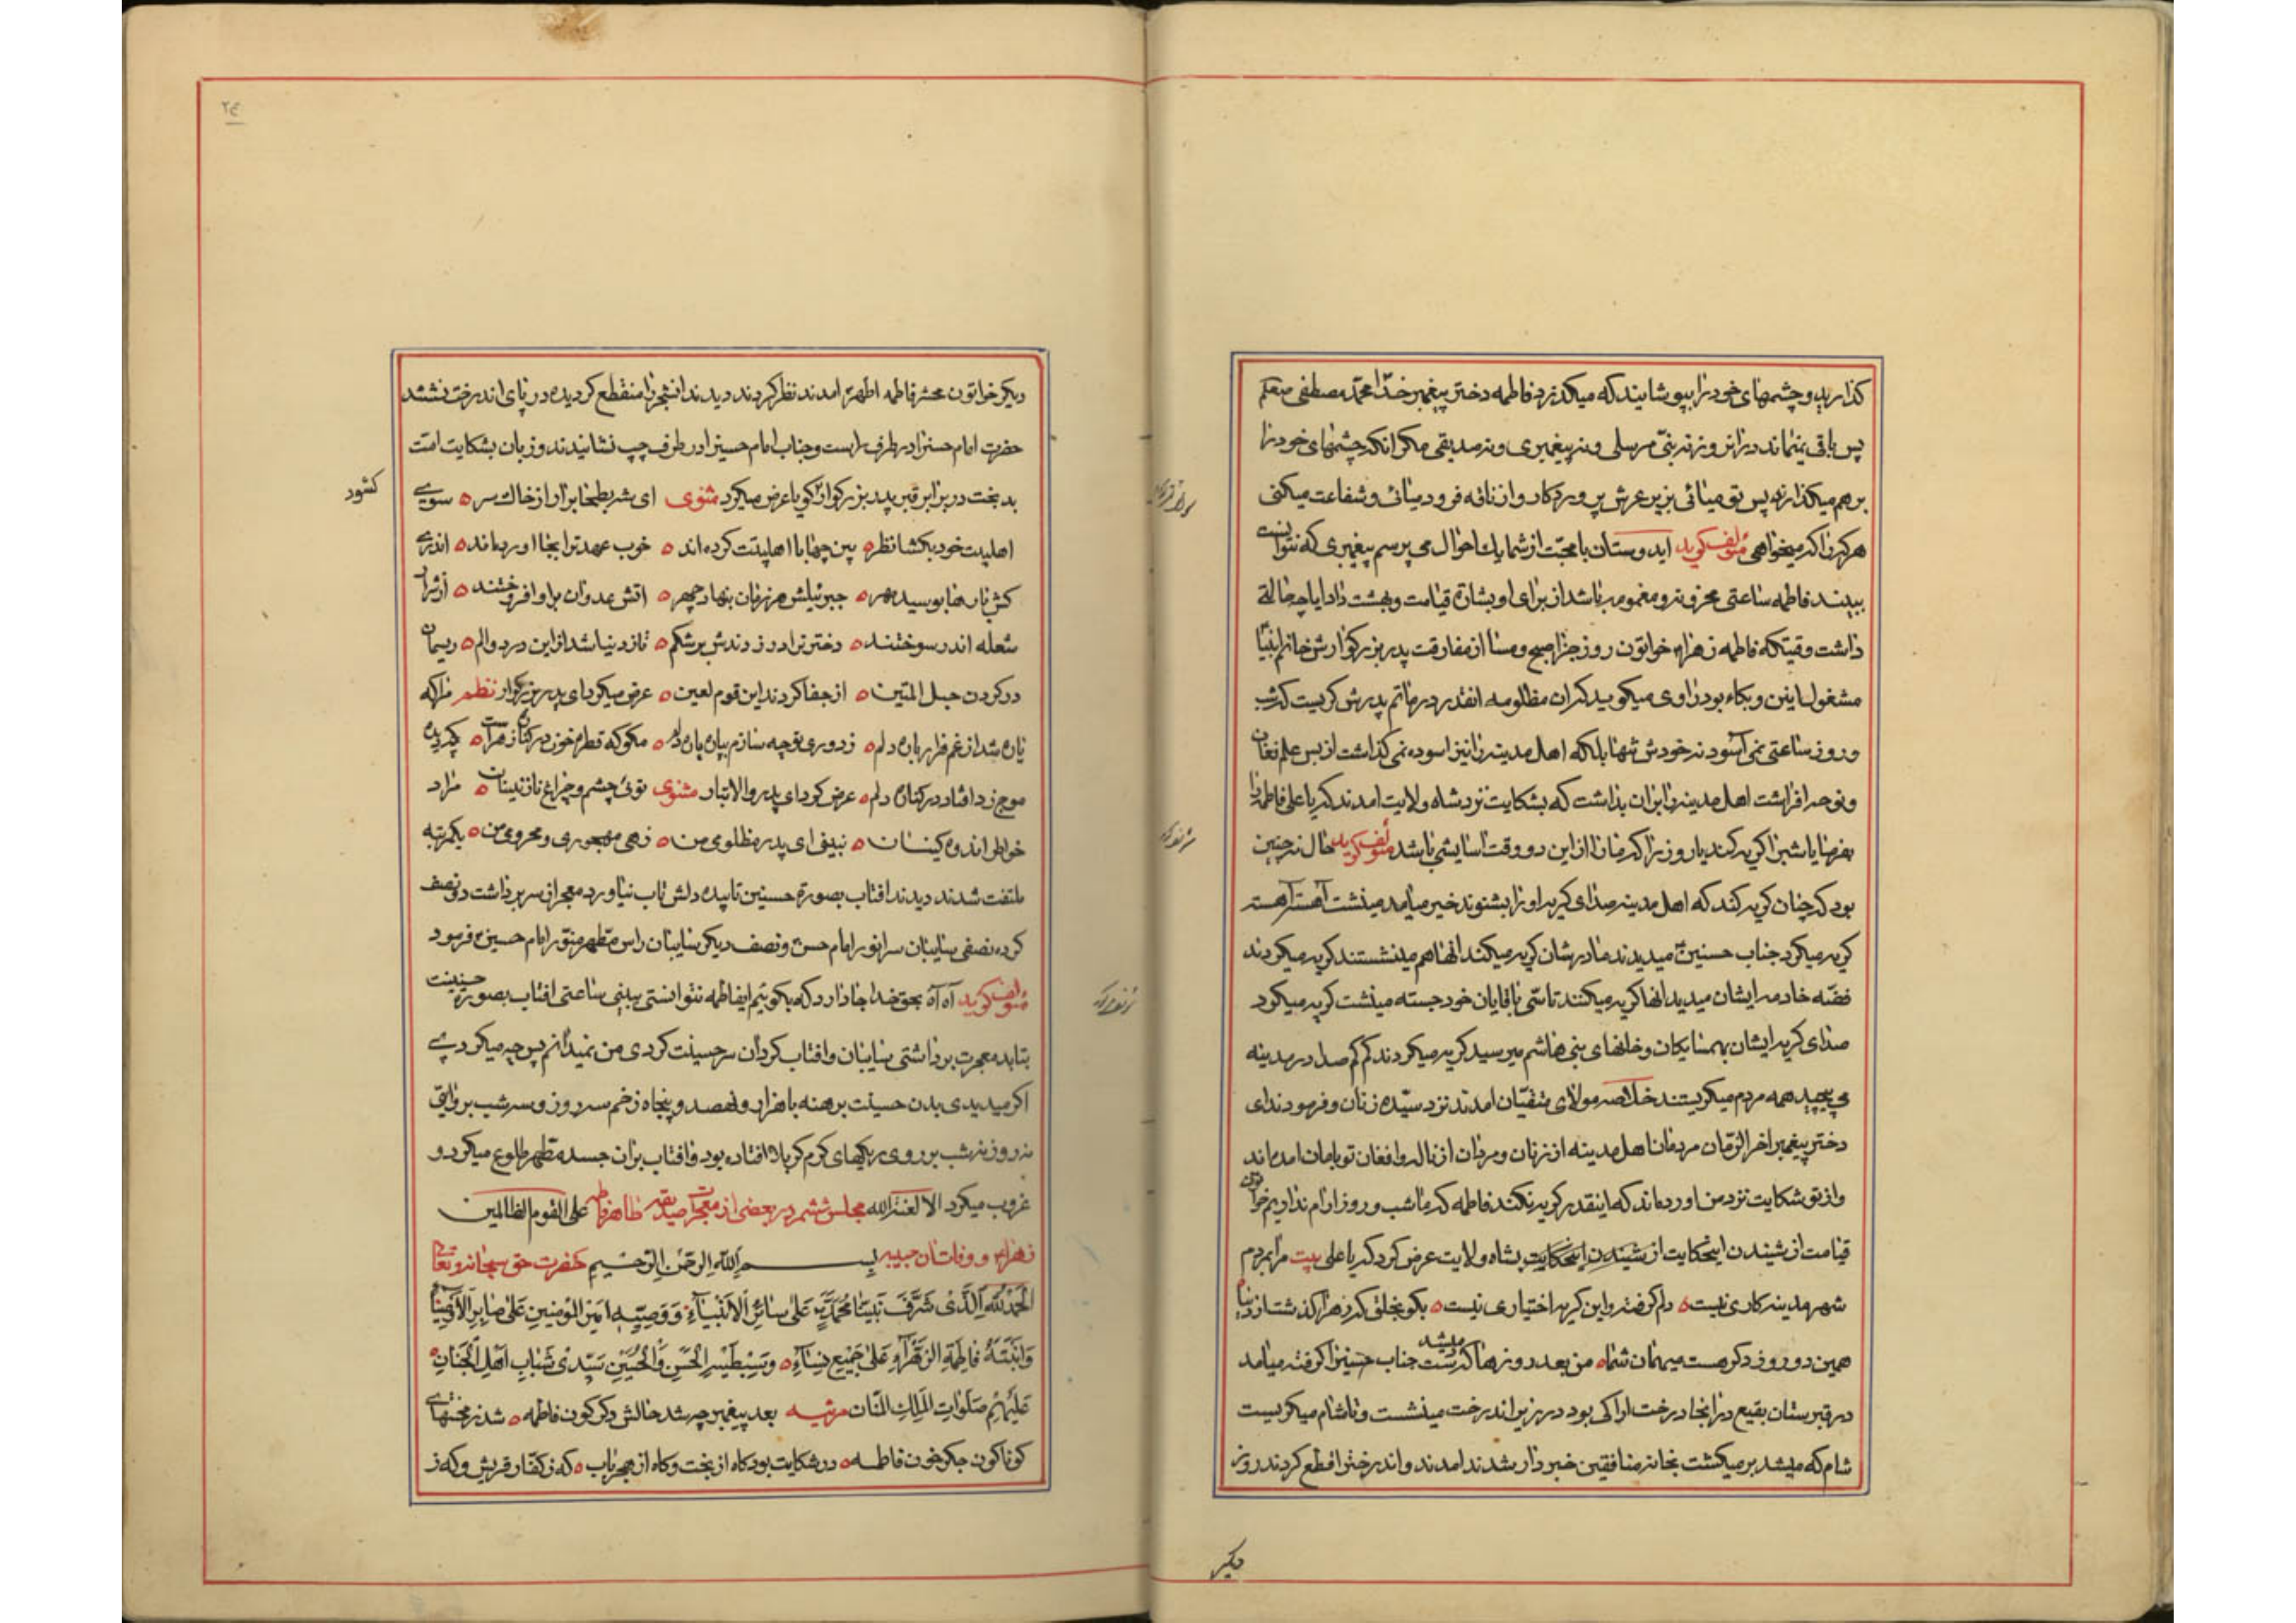 گذارید و چشمهای خود را بپوشانید که میگذرد فاطمه دختر پیغمبر خدا محمد مصطفی صلعم
پس باقی نمیماند در ان روز نه نبی مرسلی و نه پیغمبری و نه صدیقی مگر انکه چشمهای خود را
بر هم میگذارند پس تو میائی بزیر عرش پروردکار و از ناقه فرود میائی و شفاعت میکنی
هر که را که میخواهی مؤلف کوید ایدوستان با محبت از شما یک احوال می پرسم پیغمبری که نتوانست
ببیند فاطمه ساعتی محزون و مغموم باشد از برای او بشارة قیامت و بهشت داد ایا چه حالة
داشت وقتیکه فاطمه زهراء خواتون روز جزا صبح و مسا از مفارقت پدر بزرکوارش خاتم انبیا
مشغول باینن و بکاء بود راوی میکوید که ان مظلومه انقدر در ماتم پدرش کریست که شب
و روز ساعتی نمی آسود نه خودش تنها بلکه اهل مدینه را نیز اسوده نمی کذاشت از بس علم فغان
و نوحه افراشت اهل مدینه را بران بداشت که بشکایت نزد شاه ولایت امدند که یا علی فاطمه را
بفرما یا شبرا کریه کند یا روز را که مارا از این دو وقت اسایشی باشد مؤلف کوید حال نه چنین
بود که چنان کریه کند که اهل مدینه صدای کریه او را بشنوند خیر میامد مینشت آهسته آهسته
کریه میکرد جناب حسنین میدیدند مادرشان کریه میکند انها هم مینشستند کریه میکردند
فضه خادمه ایشان میدید انها کریه میکنند تاسی باقایان خود جسته مینشت کریه میکرد
صدای کریه ایشان بهمسایکان و خانهای بنی هاشم میرسید کریه میکردند کم کم صدا در مدینه
می پیچید همه مردم میکریستند خلاصه مولای متقیان امدند نزد سیده زنان و فرمودند ای
دختر پیغمبر اخر الزمان مردمان اهل مدینه از زنان و مردان از ناله و افغان تو بامان امده اند
و از تو شکایت نزد من اورده اند که اینقدر کریه نکند فاطمه که ما شب و روز ارام نداریم خواتون
قیامت از شنیدن اینحکایت از شنیدن اینحکایت بشاه ولایت عرض کرد که یا علی بیت مرا بمردم
شهر مدینه کاری نیست ه دلم کرفته و این کریه اختیاری نیست ه بکو بخلق که زهرا کذشت از دنیا
همین دو روز دکر هست میهمان شما ه من بعد روزها که میشد دست جناب حسنین را کرفته میامد
در قبرستان بقیع در انجا درخت اراکی بود در زیر اندرخت مینشست و تا شام میکریست
شام که میشد بر میکشت بخانه منافقین خبردار شدند امدند و اندرخترا قطع کردند روز
دیکر
دیکر خواتون محشر فاطمه اطهر امدند نظر کردند دیدند انشجر را منقطع کردیده در پای اندرخت نشستند
حضرت امام حسنرا در طرف راست و جناب امام حسینرا در طرف چپ نشانیدند و زبان بشکایت امت
بدبخت در برابر قبر پدر بزرکوار کویا عرض میکرد مثنوی ای شه بطحا برار از خاک سر ه سوی
کشور
اهلبیت خود بکشا نظر ه بین چها با اهلبیتت کرده اند ه خوب عهدترا بجا اورده اند ه اندری
کش باب ها بوسید مهر ه جبرئیلش هر زمان بنهاد چهر ه اتش عدوان بر او افروختند ه از شرار
شعله اندر سوختند ه دخترترا در زدندش بر شکم ه تا ز دنیا شد از این درد و الم ه ریسمان
در کردن حبل المتین ه از جفا کردند این قوم لعین ه عرض میکرد ای پدر بزرکوار نظم مرا که
نان شد از غم فزار بان دلم ه ز دوری تو چه سازم بیان بان دلم ه مکو که قطره خون در کنار مراست ه چکیده
موج زد افتاد در کنان دلم ه عرض کرد ای پدر والاتبار مثنوی توئی چشم و چراغ نازنینان ه مراد
خواطر اندوه کینان ه نبینی ای پدر مظلومی من ه زهی مهجوری و محرومی من ه یکمرتبه
ملتفت شدند دیدند افتاب بصورة حسنین تابیده دلش تاب نیاورد معجر از سر برداشت دو نصف
کرده نصفی سایبان سر انور امام حسن و نصف دیکر سایبان راس مطهر منور امام حسین فرمود
مؤلف کوید آه آه بحق خدا جا دارد که بکوئیم ایفاطمه نتوانستی ببینی ساعتی افتاب بصورة حسینت
بتابد معجرت برداشتی سایبان و افتاب کردان سر حسینت کردی من نمیدانم پس چه میکردی
اکر میدیدی بدن حسینت برهنه با هزار و نهصد و پنجاه زخم سه روز و سه شب بروایتی
نه روز نه شب بر روی ریکهای کرم کربلا افتاده بود و افتاب بران جسد مطهر طلوع میکرد و
غروب میکرد الا لعنة الله مجلس ششم در بعضی از معجزات صدیقه طاهره فاطمه علی القوم الظالمین
زهراء و وفات ان حبیبه بسم الله الرحمن الرحیم حضرت حق سبحانه و تعالی
الحمد لله الذی شرف نبینا محمد علی سائر الانبیاء و وصیه امیر المؤمنین علی سایر الاوصیاء
وابنته فاطمة الزهراء علی جمیع نساء ه وسبطیه الحسن والحسین سیدی شباب اهل الجنان
علیهم صلوات الملک المنان مرثیه بعد پیغمبر چه شد حالش دکر کون فاطمه ه شد ز محنتهای
کوناکون جکر خون فاطمه ه در شکایت بود کاه از بخت و کاه از هجر باب ه که ز کفار قریش و که ز